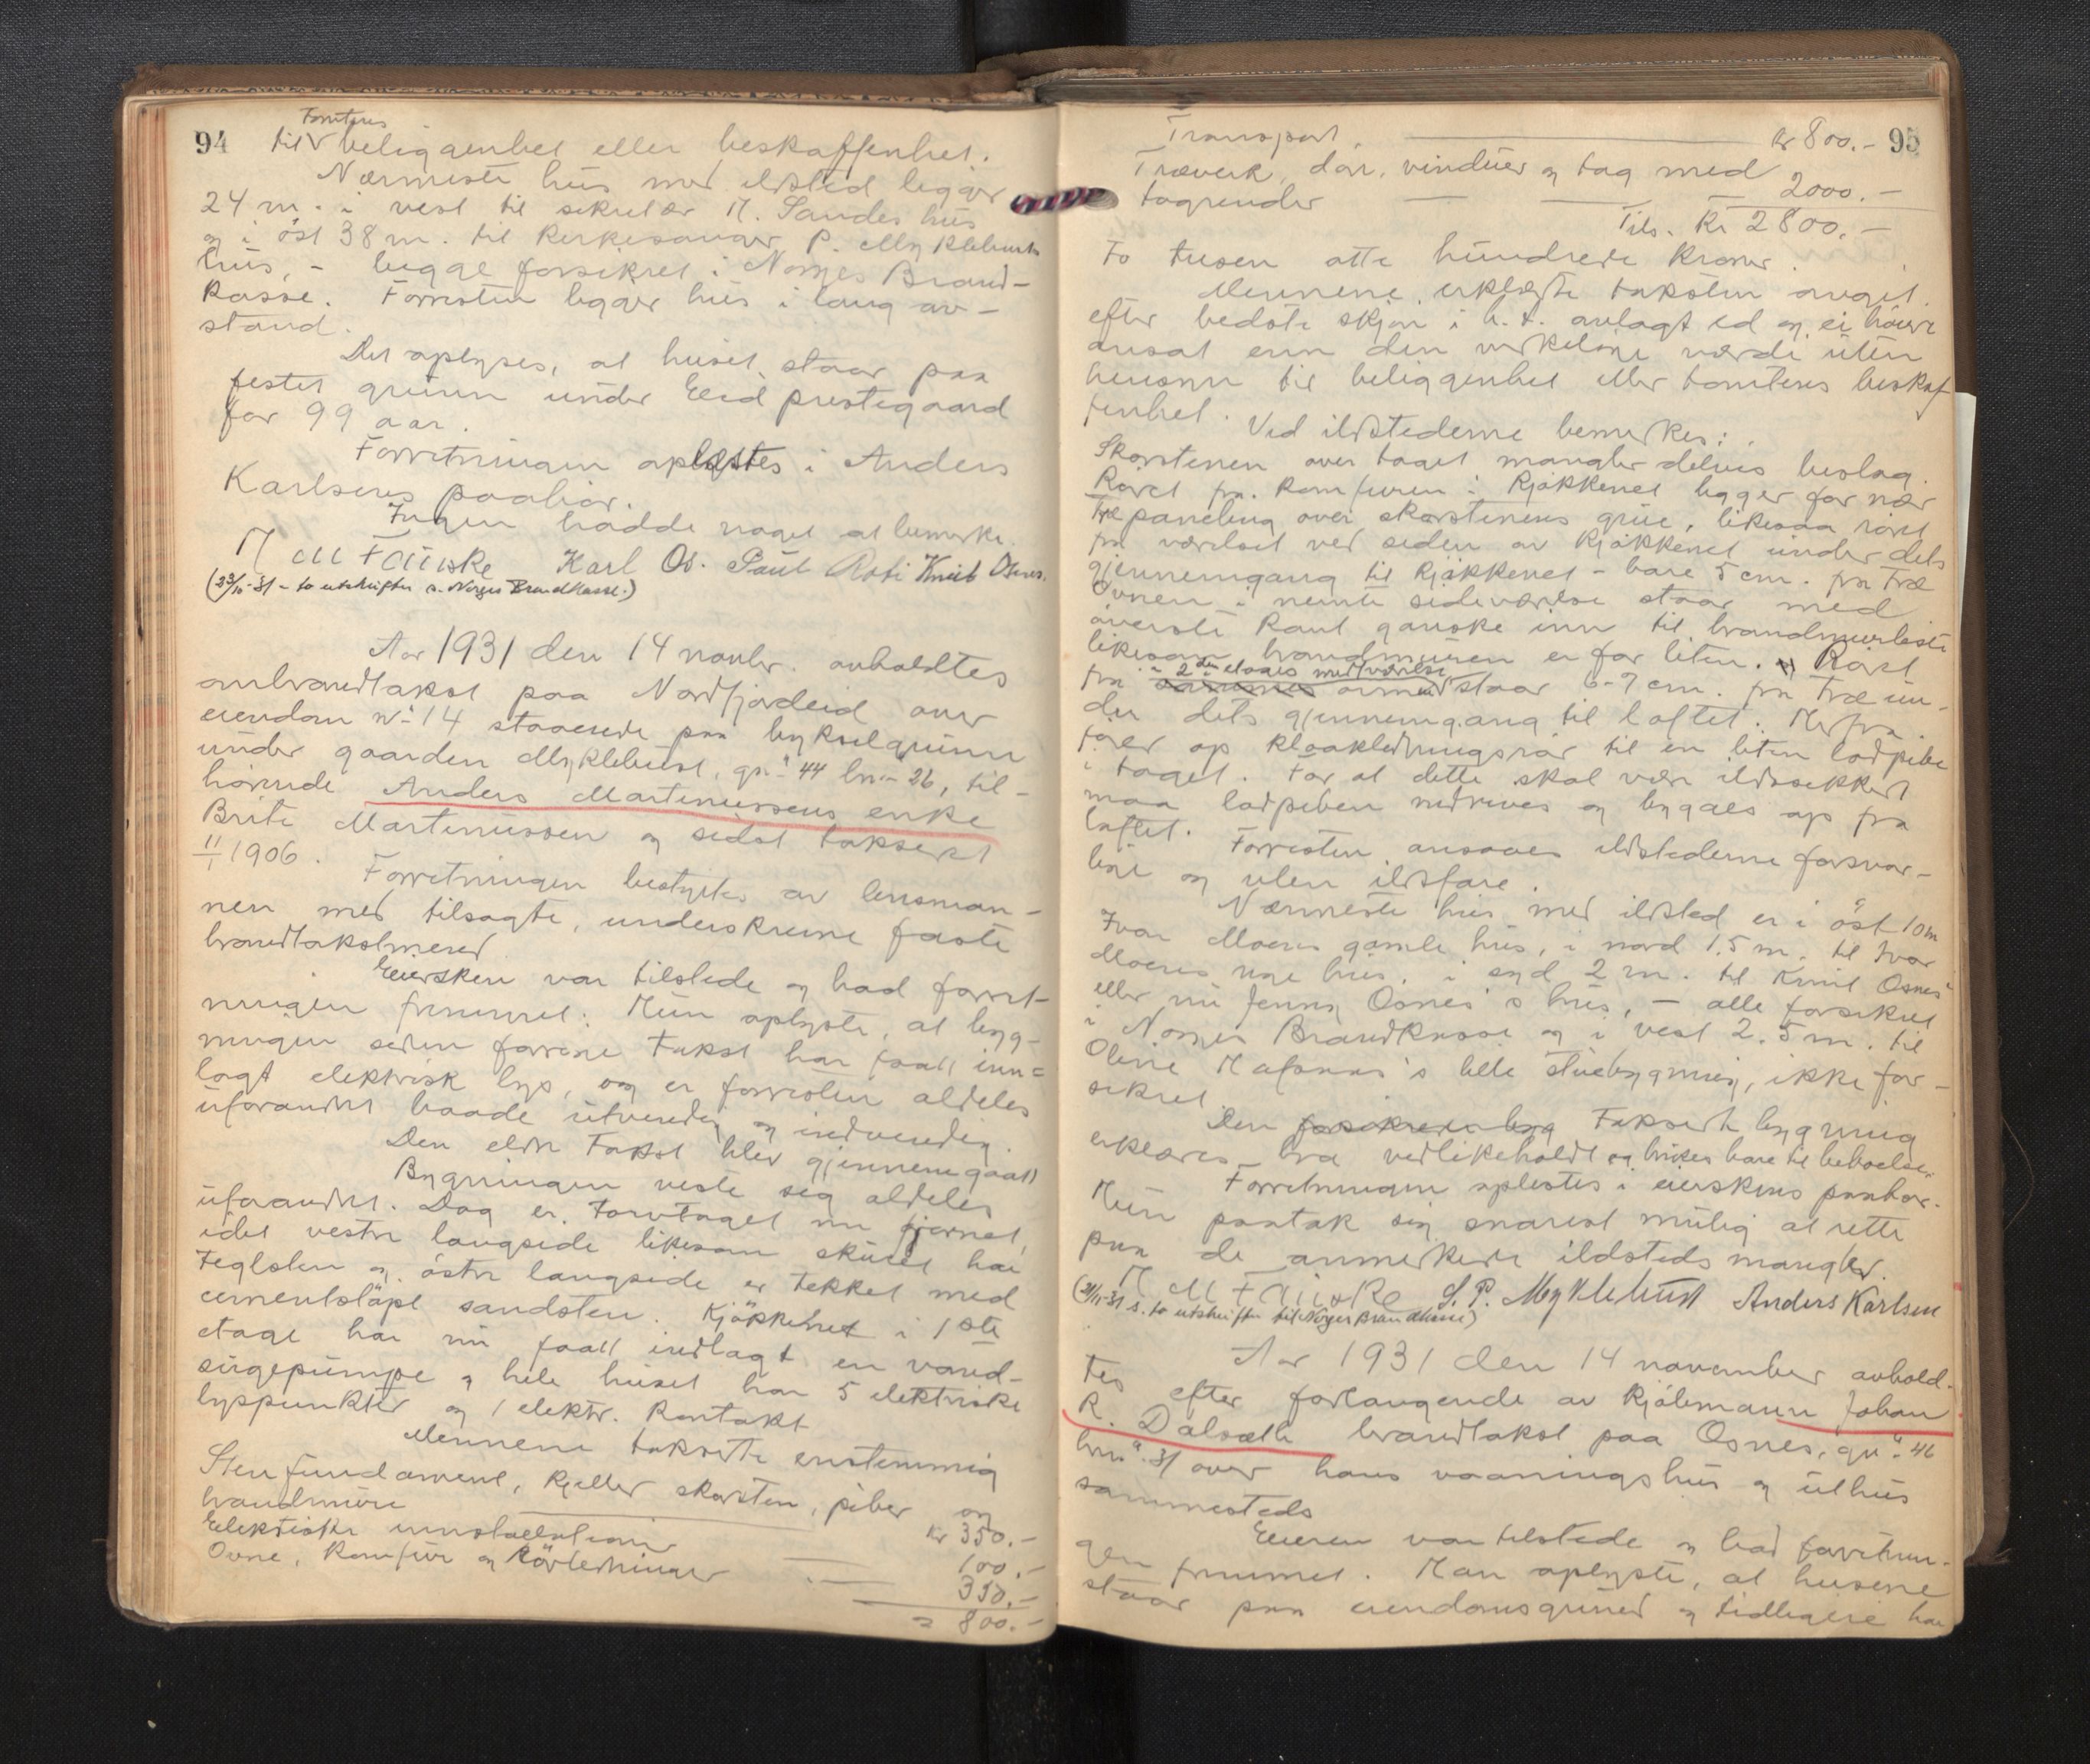 94 til Tomtens beliggenhet eller beskaffenhet.
Nærmeste hus med ildsted ligger
24 m. i vest til sekretær H. Sandes hus
og i öst 38 m. til Kirkesanger P. Myklebusts
hus, - begge forsikret i Norges Brand-
kasse. Forresten ligger hus i lang av-
stand.
Det oplyses, at huset staar paa
festet grunn under Eid prestegaard
for 99 aar.
Forretningen oplæstes i Anders
Karlsens paahör.
Ingen hadde noget at bemerke.
Karl Os. Paul Roti Knut Osnes.
(23/10-31 - to utskrifter s. Norges Brandkasse.)
Aar 1931 den 14 novbr. avholdtes
ombrandtakst paa Nordfjordeid over
eiendom No 14 staaende paa bykselgrunn
under gaarden Myklebust, gr.no 44 br.no 26, til-
hörende Anders Martinussens enke
Brite Martinussen og sidst taksert
11/1 1906.
Forretningen bestyrtes av lensman-
nen med tilsagte, underskrevne faste
brandtakstmenn.
Eiersken var tilstede og bad forret-
ningen fremmet. Hun oplyste, at byg-
ningen siden forrige takst har faatt inn-
lagt elektrisk lys, og er forresten aldeles
uforandret baade utvendig og indvendig.
Den eldre Takst blev gjennemgaatt
Bygningen viste sig aldeles
uforandret. Dog er Torvtaget nu fjernet,
idet vestre langside likesom skuret har
Teglsten og östre langside er tekket med
cementstöpt sandsten. Kjökkenet i 1ste
etage har nu faatt indlagt en vand-
sugepumpe og hele huset har 5 elektriske
lyspunkter og 1 elektr. Kontakt
Mennene takserte enstemmig
Stenfundament, kjeller skorsten, piber og
brandmure Kr 350.-
Elektriske innstallation 100.-
Ovne, Komfur og Rörledninger 350.-
= 800.-
Transport Kr 800.- 95
Træverk, dör, vinduer og tag med
tagrender 2000.-
Tils. Kr 2800.-
To tusen otte hundrede Kroner.
Mennene erklærte taksten avgit
efter bedste skjön i h. t. avlagt ed og ei höiere
ansat enn den virkelige værdi uten
hensyn til beliggenhet eller tomtens beskaf-
fenhet.
Ved ildstederne bemerkes:
Skorstenen over taget mangler delvis beslag.
Röret fra Komfuren i Kjökkenet ligger for nær
Træpaneling over skorstenens grue, likesaa röret
fra værelset ved siden av Kjökkenet under dets
gjennemgang til Kjökkenet - bare 5 cm. fra Træ
Ovnen i nevnte sideværelse staar med
överste Kant ganske inn til brandmurlist
likesom brandmuren er for liten. Röret
fra i 2den etages midtværelse staar 6-7 cm. fra Træ un-
der dets gjennemgang til loftet. Herfra
förer op kloakledningsrör til en liten lodpibe
i taget. For at dette skal være ildssikkert
maa lodpiben nedrives og bygges op fra
loftet. Forresten ansaaes ildstederne forsvar-
lige og uten ildsfare.
Nærmeste hus med ildsted er i öst 10 m
Ivar Moens gamle hus, i nord 1.5 m. til Ivar
Moens nye hus, i syd 2 m. til Knut Osnes
eller nu Jenny Osnes's hus, - alle forsikret
i Norges Brandkasse og i vest 2.5 m. til
Oline Hafsaas's lille stuebygning, ikke for-
sikret.
Den forsikrede byg Takserte bygning
erklæres bra vedlikeholdt og brukes bare til beboelse.
Forretningen oplestes i eierskens paahör.
Hun paatok sig snarest mulig at rette
paa de anmerkede ildsteds mangler.
S. P. Myklebust Anders Karlsen
(21/11-31 s. to utskrifter til Norges Brandkasse)
Aar 1931 den 14 november avhold-
tes efter forlangende av Kjöbmann Johan
R. Dalsæth brandtakst paa Osnes, gr.no 46
br.no 31 over hans vaaningshus og uthus
sammesteds
Eieren var tilstede og bad forretnin-
gen fremmet. Han oplyste, at husene
staar paa eiendomsgrund og tidligere har